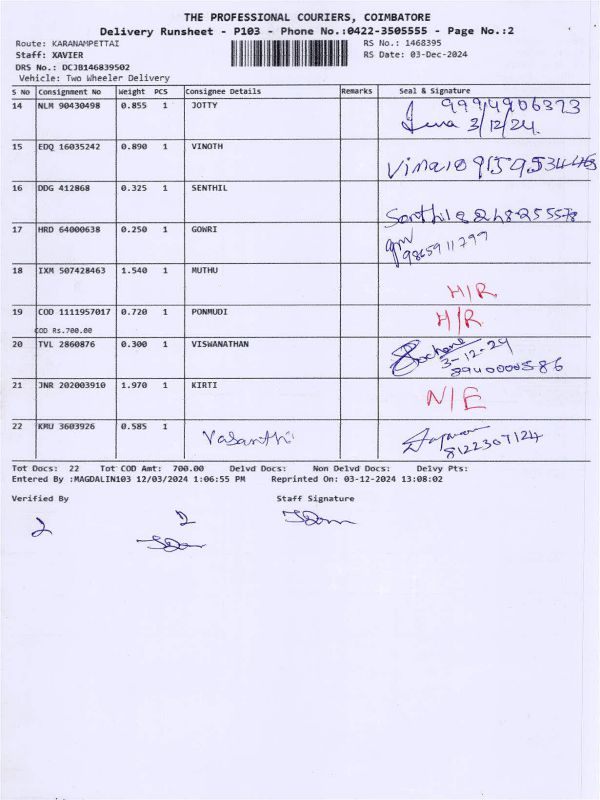 THE PROFESSIONAL COURIERS, COIMBATORE
Delivery Runsheet - P103 - Phone No.:0422-3505555 - Page No.:2
Route: KARANAMPETTAI RS No.: 1468395
Staff: XAVIER RS Date: 03-Dec-2024
DRS No.: DCJB146839502
Vehicle: Two Wheeler Delivery
S No Consignment No Weight PCS Consignee Details Remarks Seal & Signature
14 NLM 90430498 0.855 1 JOTTY 9994906373
3/12/24.
15 EDQ 16035242 0.890 1 VINOTH
16 DDG 412868 0.325 1 SENTHIL
Senthil
17 HRD 64000638 0.250 1 GOWRI
9865911799
18 IXM 507428463 1.540 1 MUTHU
H/R
19 COD 1111957017 0.720 1 PONMUDI H/R
COD Rs.700.00
20 TVL 2860876 0.300 1 VISWANATHAN
3-12-24
8940000586
21 JNR 202003910 1.970 1 KIRTI N/E
22 KMU 3603926 0.585 1 Vasanthi
8122307124
Tot Docs: 22 Tot COD Amt: 700.00 Delvd Docs: Non Delvd Docs: Delvy Pts:
Entered By :MAGDALIN103 12/03/2024 1:06:55 PM Reprinted On: 03-12-2024 13:08:02
Verified By Staff Signature
2 2